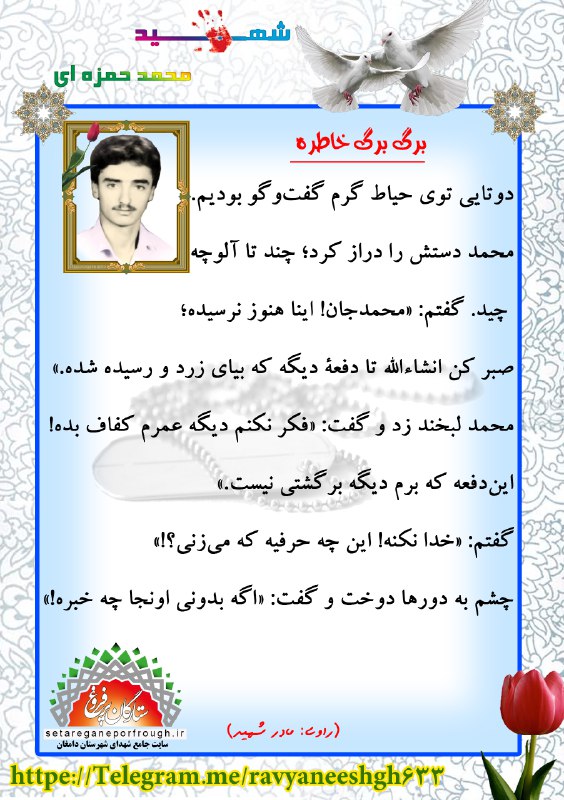 شهید
محمد حمزه ای
برگی برگی خاطره
دوتایی توی حیاط گرم گفت‌وگو بودیم.
محمد دستش را دراز کرد؛ چند تا آلوچه
چید. گفتم: «محمدجان! اینا هنوز نرسیده؛
صبر کن انشاءالله تا دفعهٔ دیگه که بیای زرد و رسیده شده.»
محمد لبخند زد و گفت: «فکر نکنم دیگه عمرم کفاف بده!
این‌دفعه که برم دیگه برگشتی نیست.»
گفتم: «خدا نکنه! این چه حرفیه که می‌زنی؟!»
چشم به دورها دوخت و گفت: «اگه بدونی اونجا چه خبره!»
(راوی: مادر شهید)
ستارگان پرفروغ
setareganeporfrough.ir
سایت جامع شهدای شهرستان دامغان
https://Telegram.me/ravyaneeshgh633